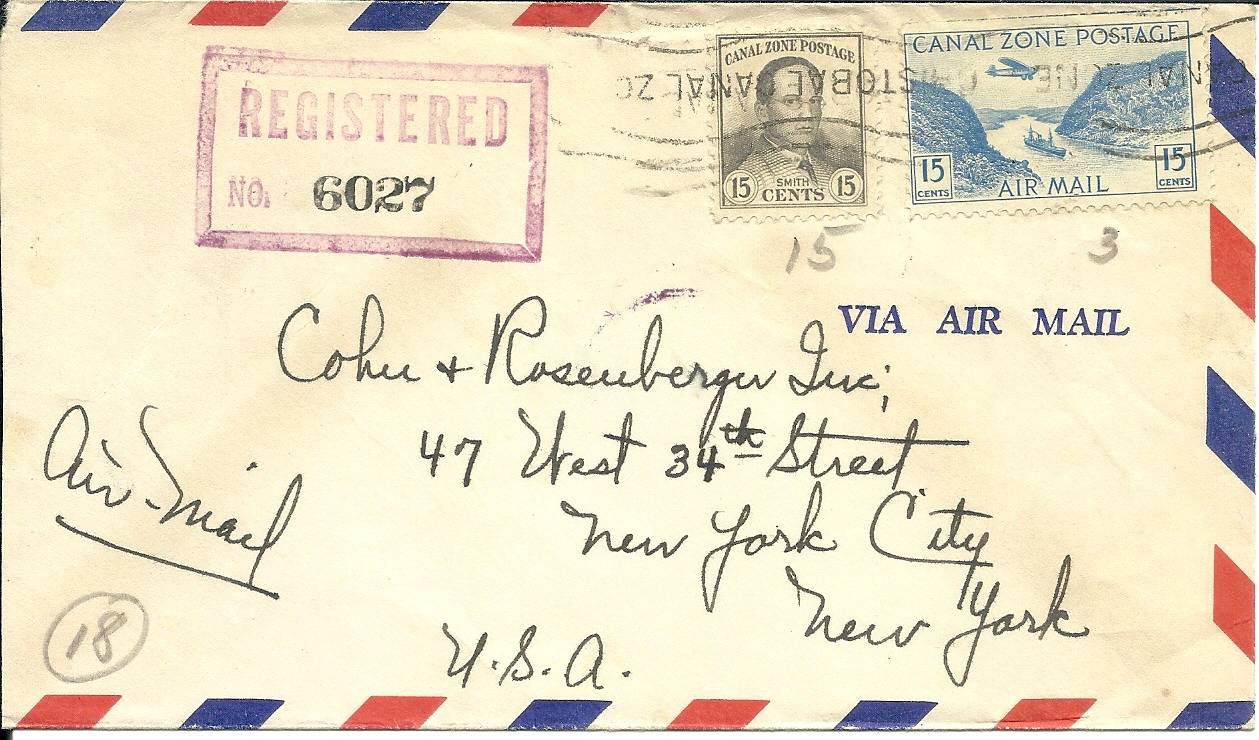 REGISTERED
NO. 6027
CANAL ZONE POSTAGE
SMITH
15 CENTS 15
CANAL ZONE POSTAGE
15 CENTS
AIR MAIL
15 CENTS
CRISTOBAL CANAL ZO
CANAL ZONE
15
3
VIA AIR MAIL
Cohn + Rosenberger Inc,
47 West 34th Street
New York City
New York
U.S.A.
Air-Mail
18